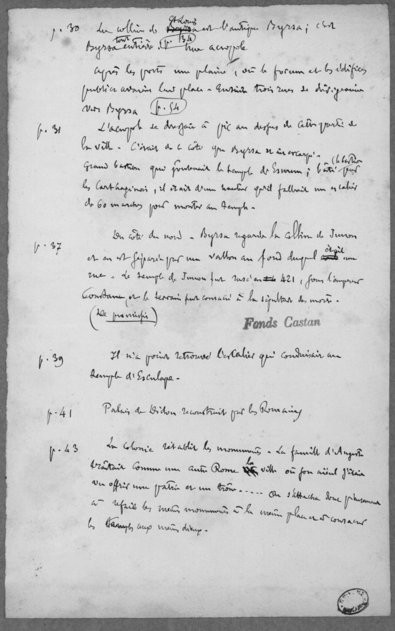 p. 30 La colline de St Louis est l'antique Byrsa ; c'est
Byrsa tout entière (p. 134) une acropole
Après les ports une plaine, où le forum et les édifices
publics avaient leur place - Ensuite trois rues de
vers Byrsa (p. 54)
p. 31 L'acropole se dressait à pic au dessus de cette partie de
la ville - C'était de ce côté que Byrsa
Grand bastion qui soutenait le temple de Esmun ; bâti par
les Carthaginois, il était d'une hauteur qu'il fallait un escalier
de 60 marches pour monter au temple -
p. 37 Du côté du nord - Byrsa regarde la colline de Junon
et en est séparée par un vallon au fond duquel était une
rue - Le temple de Junon fut rasé en 421, sous l'empereur
Constance et le terrain fut consacré à la sépulture des morts -
Fonds Castan
p. 39 Il n'a point retrouvé l'escalier qui conduisait au
temple d'Esculape -
p. 41 Palais de Didon reconstruit par les Romains
p. 43 La colonie rétablit les monuments - La famille d'Auguste
traitait comme une autre Rome la ville où son aïeul
offrir une patrie et un trône ..... On s'attacha donc
à refaire les mêmes monuments à la même place et à consacrer
les temples aux mêmes dieux.